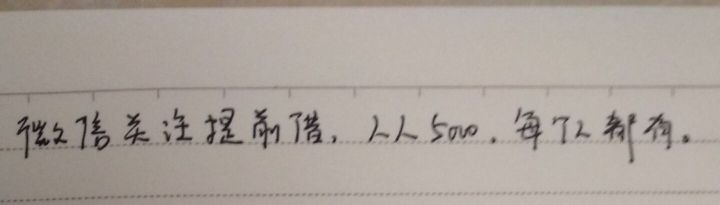 微信关注提前借，人人5000，每个人都有。